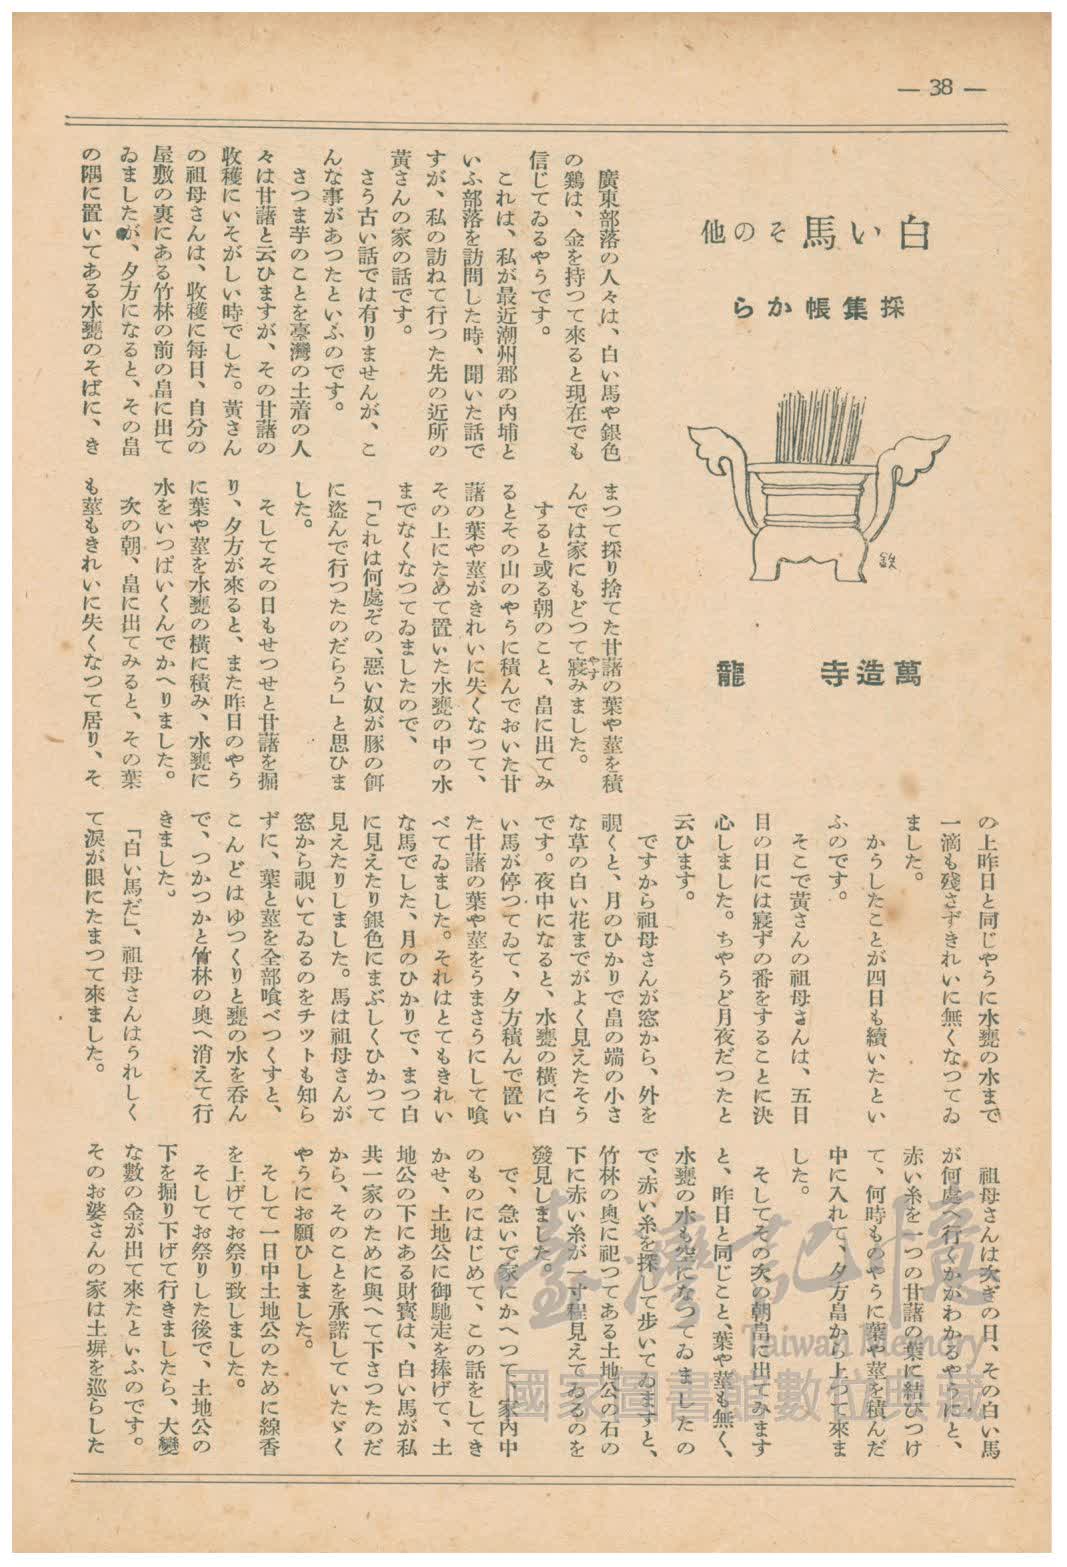 — 38 —
白い馬その他
採集帳から
萬造寺　龍
　廣東部落の人々は、白い馬や銀色
の鷄は、金を持つて來ると現在でも
信じてゐるやうです。
　これは、私が最近潮州郡の內埔と
いふ部落を訪問した時、聞いた話で
すが、私の訪ねて行つた先の近所の
黃さんの家の話です。
　さう古い話では有りませんが、こ
んな事があつたといふのです。
　さつま芋のことを臺灣の土着の人
々は甘藷と云ひますが、その甘藷の
收穫にいそがしい時でした。黃さん
の祖母さんは、收穫に每日、自分の
屋敷の裏にある竹林の前の畠に出て
ゐましたが、夕方になると、その畠
の隅に置いてある水甕のそばに、き
まつて採り捨てた甘藷の葉や莖を積
んでは家にもどつて寢みました。
やす
　すると或る朝のこと、畠に出てみ
るとその山のやうに積んでおいた甘
藷の葉や莖がきれいに失くなつて、
その上にためて置いた水甕の中の水
までなくなつてゐましたので、
　「これは何處ぞの、惡い奴が豚の餌
に盜んで行つたのだらう」と思ひま
した。
　そしてその日もせつせと甘藷を掘
り、夕方が來ると、また昨日のやう
に葉や莖を水甕の橫に積み、水甕に
水をいつぱいくんでかへりました。
　次の朝、畠に出てみると、その葉
も莖もきれいに失くなつて居り、そ
の上昨日と同じやうに水甕の水まで
一滴も殘さずきれいに無くなつてゐ
ました。
　かうしたことが四日も續いたとい
ふのです。
　そこで黃さんの祖母さんは、五日
目の日には寢ずの番をすることに決
心しました。ちやうど月夜だつたと
云ひます。
　ですから祖母さんが窓から、外を
覗くと、月のひかりで畠の端の小さ
な草の白い花までがよく見えたそう
です。夜中になると、水甕の橫に白
い馬が停つてゐて、夕方積んで置い
た甘藷の葉や莖をうまさうにして喰
べてゐました。それはとてもきれい
な馬でした、月のひかりで、まつ白
に見えたり銀色にまぶしくひかつて
見えたりしました。馬は祖母さんが
窓から覗いてゐるのをチツトも知ら
ずに、葉と莖を全部喰べつくすと、
こんどはゆつくりと甕の水を呑ん
で、つかつかと竹林の奥へ消えて行
きました。
　「白い馬だ」、祖母さんはうれしく
て淚が眼にたまつて來ました。
　祖母さんは次ぎの日、その白い馬
が何處へ行くかがわかるやうにと、
赤い糸を一つの甘藷の葉に結びつけ
て、何時ものやうに葉や莖を積んだ
中に入れて、夕方畠から上つて來ま
した。
　そしてその次の朝畠に出てみます
と、昨日と同じこと、葉や莖も無く、
水甕の水も空になつてゐましたの
で、赤い糸を探して步いてゐますと、
竹林の奥に祀つてある土地公の石の
下に赤い糸が一寸程見えてゐるのを
發見しました。
　で、急いで家にかへつて、家內中
のものにはじめて、この話をしてき
かせ、土地公に御馳走を捧げて、土
地公の下にある財寶は、白い馬が私
共一家のために與へて下さつたのだ
から、そのことを承諾していたゞく
やうにお願ひしました。
　そして一日中土地公のために線香
を上げてお祭り致しました。
　そしてお祭りした後で、土地公の
下を掘り下げて行きましたら、大變
な數の金が出て來たといふのです。
そのお婆さんの家は土塀を巡らした
臺灣記憶
Taiwan Memory
國家圖書館數位典藏